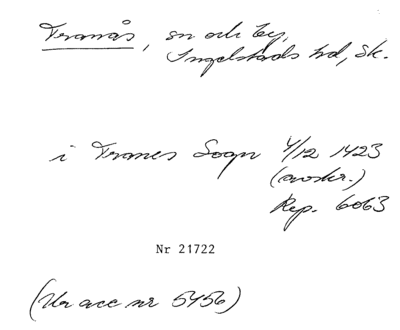 Tranås, sn och by,
Ingelstads hd, Sk.
i Tranes Sogn 4/12 1423
(avskr.)
Rep. 6063
Nr 21722
(Ur acc nr 5456)